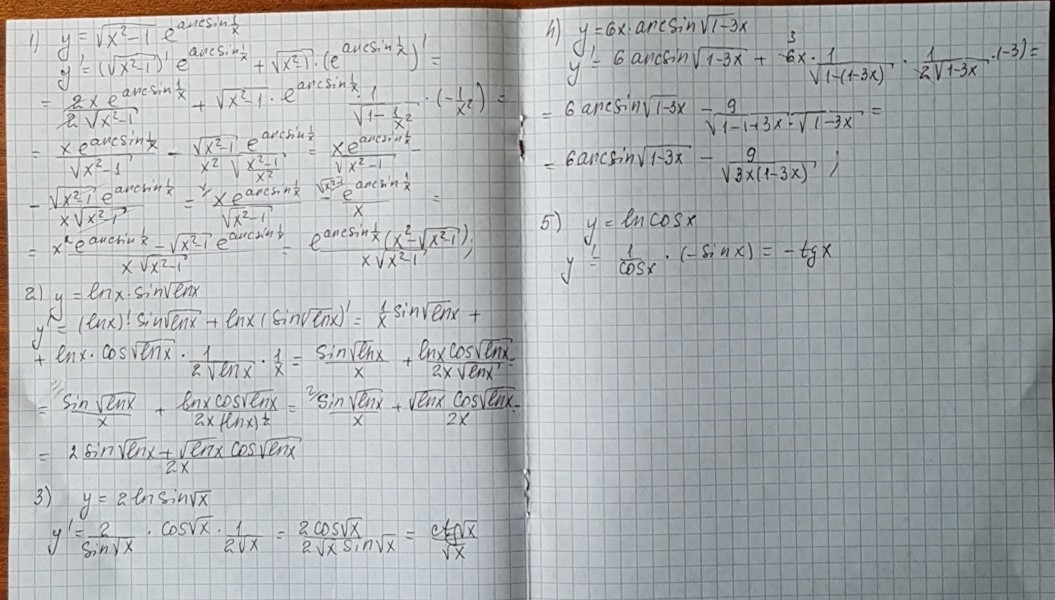 1) y = √(x²-1) e^(arcsin 1/x)
y' = (√(x²-1))' e^(arcsin 1/x) + √(x²-1) · (e^(arcsin 1/x))' =
= 2x e^(arcsin 1/x) / 2√(x²-1) + √(x²-1) · e^(arcsin 1/x) · 1/√(1-1/x²) · (-1/x²) =
= x e^(arcsin 1/x) / √(x²-1) - √(x²-1) e^(arcsin 1/x) / x² √((x²-1)/x²) = x e^(arcsin 1/x) / √(x²-1) -
- √(x²-1) e^(arcsin 1/x) / x√(x²-1) = x e^(arcsin 1/x) / √(x²-1) - e^(arcsin 1/x) / x =
= x² e^(arcsin 1/x) - √(x²-1) e^(arcsin 1/x) / x√(x²-1) = e^(arcsin 1/x) (x² - √(x²-1)) / x√(x²-1) ;
2) y = lnx · sin√lnx
y' = (lnx)' sin√lnx + lnx (sin√lnx)' = 1/x sin√lnx +
+ lnx · cos√lnx · 1/2√lnx · 1/x = sin√lnx / x + lnx cos√lnx / 2x√lnx =
= sin√lnx / x + lnx cos√lnx / 2x(lnx)^½ = ² sin√lnx / x + √lnx cos√lnx / 2x =
= 2 sin√lnx + √lnx cos√lnx / 2x
3) y = 2 ln sin√x
y' = 2/sin√x · cos√x · 1/2√x = 2cos√x / 2√x sin√x = ctg√x / √x
4) y = 6x · arcsin√(1-3x)
y' = 6 arcsin√(1-3x) + 3 6x · 1/√(1-(1-3x)) · 1/2√(1-3x) · (-3) =
= 6 arcsin√(1-3x) - 9/√(1-1+3x) · √(1-3x) =
= 6 arcsin√(1-3x) - 9/√(3x(1-3x)) ;
5) y = ln cosx
y' = 1/cosx · (-sinx) = -tgx